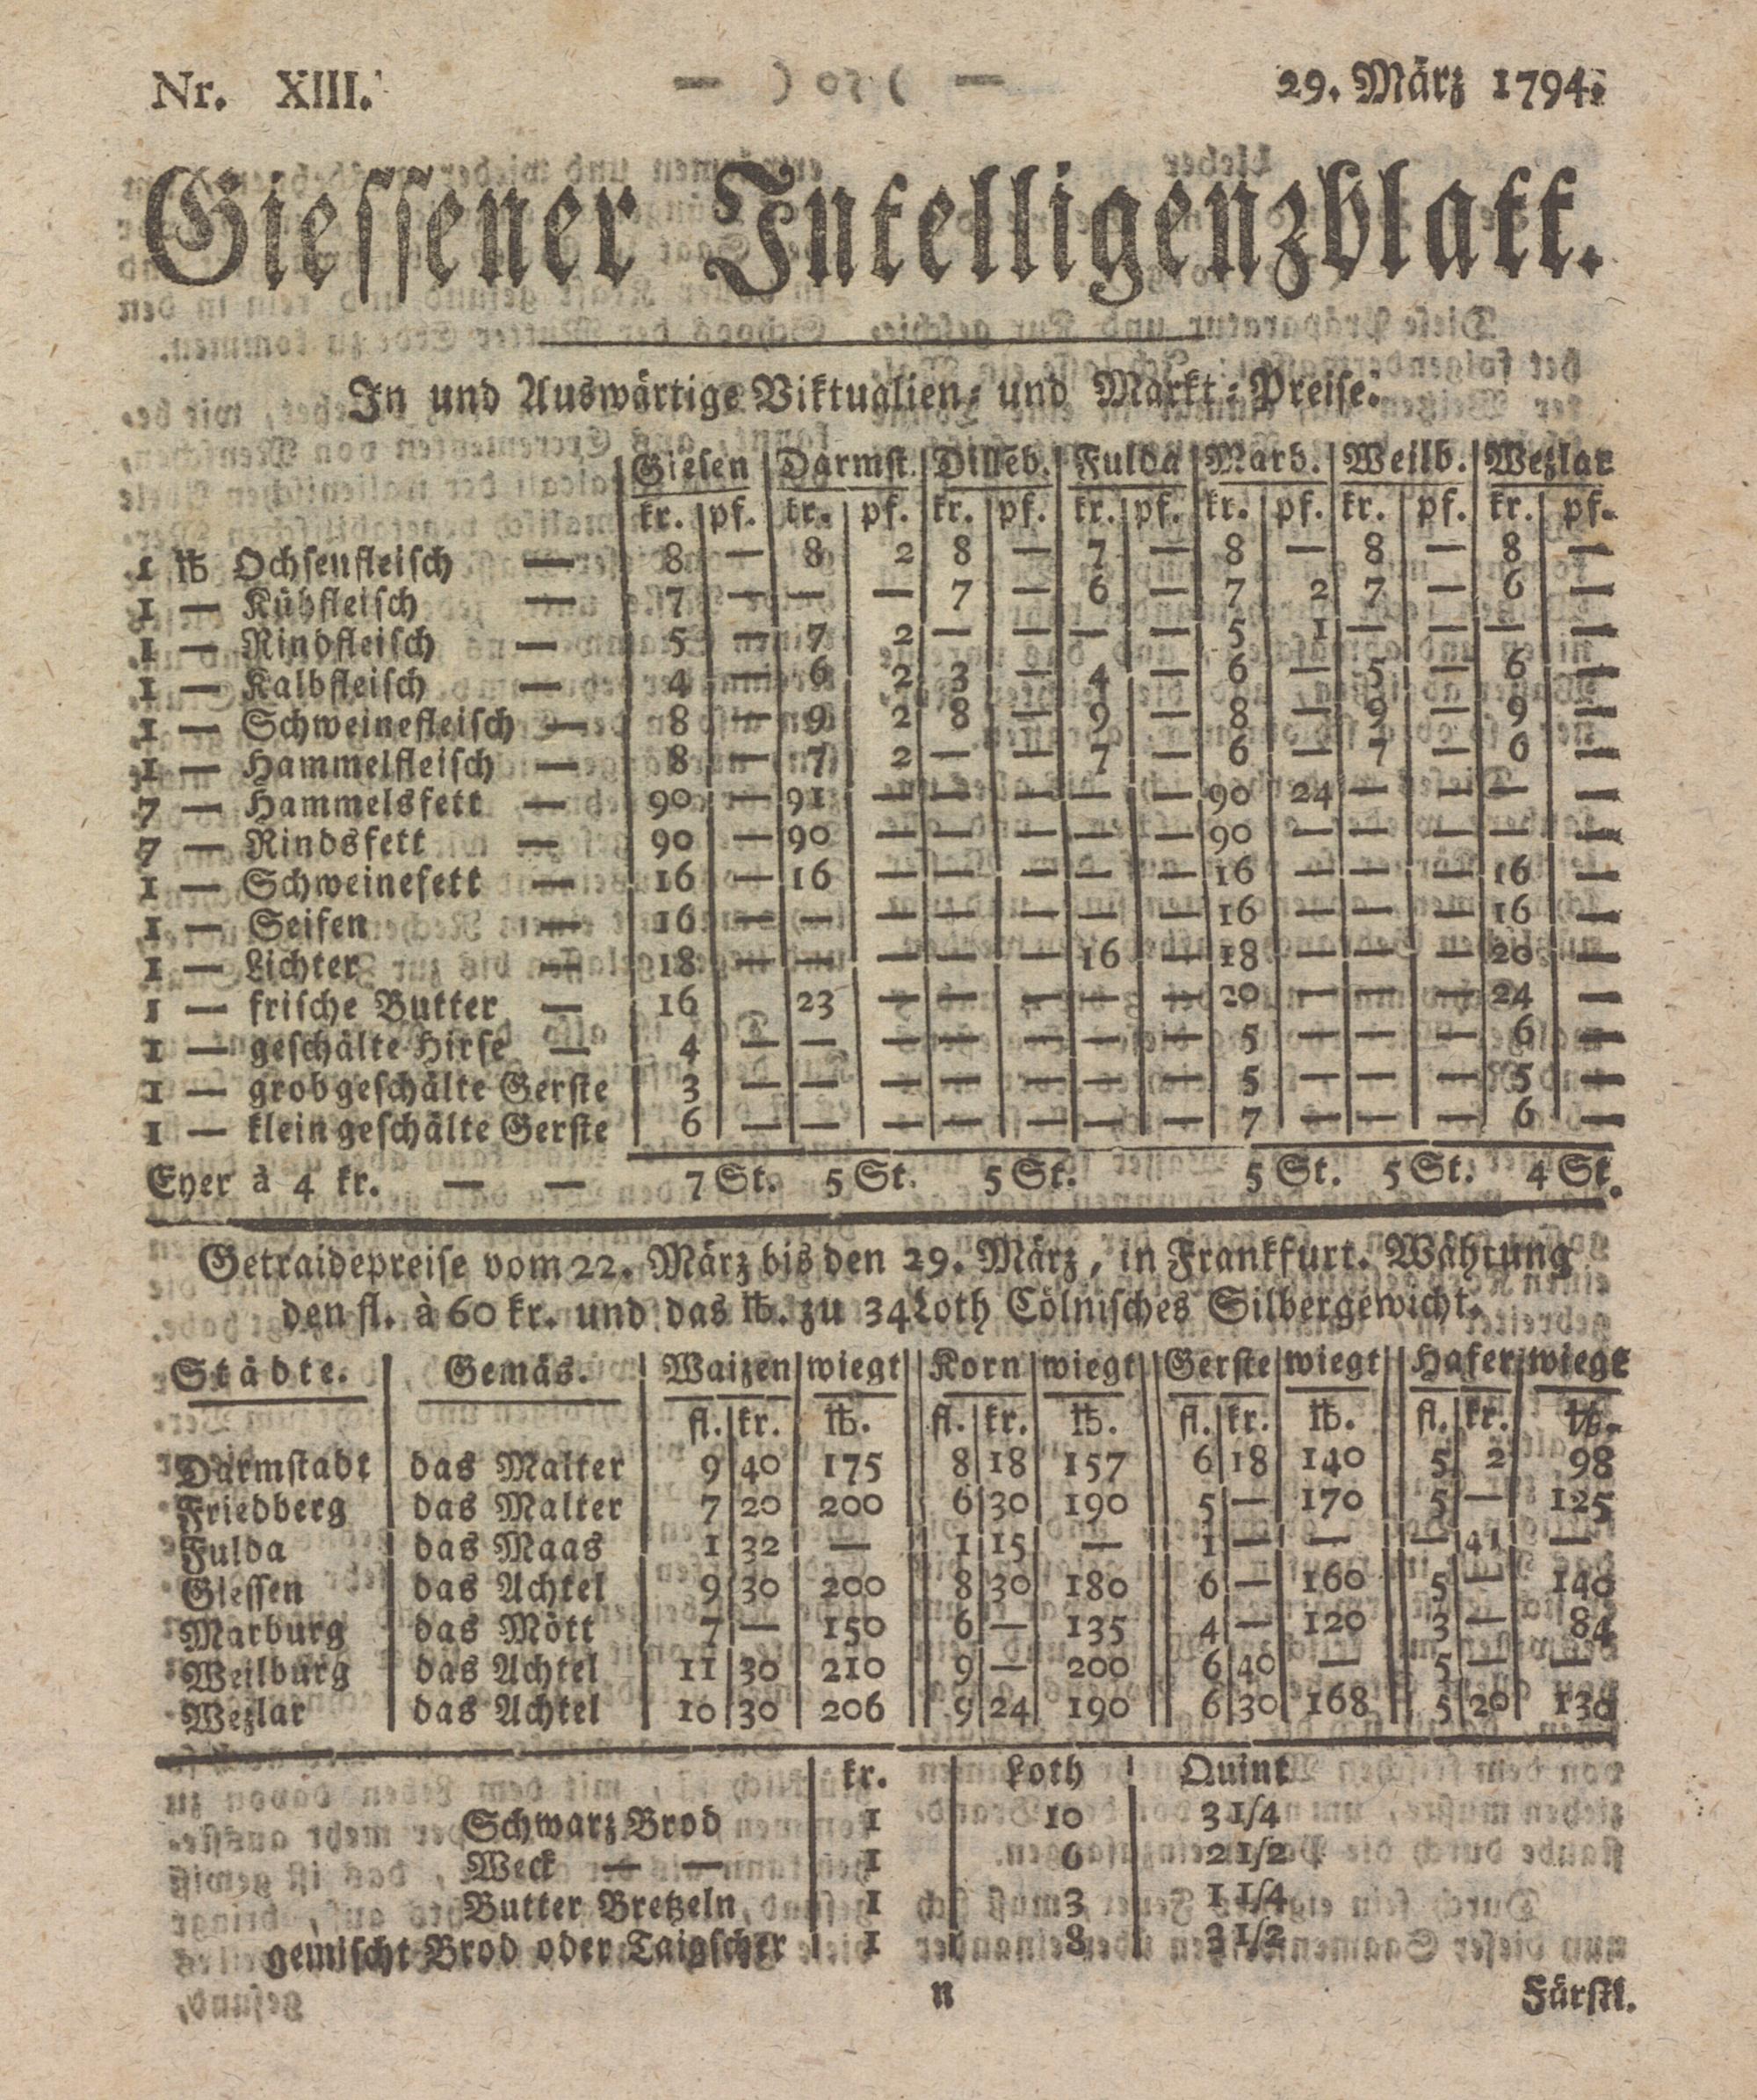 Nr. XIII. — ) 0? ( — 29. März 1794.
Giessener Intelligenzblatt.
In und Auswärtige Viktualien- und Markt-Preise.
Giesen | Darmst. | Dilleb. | Fulda | Marb. | Weilb. | Wezlar
kr. | pf. | kr. | pf. | kr. | pf. | kr. | pf. | kr. | pf. | kr. | pf. | kr. | pf.
1 ℔ Ochsenfleisch — | 8 | — | 8 | 2 | 8 | — | 7 | — | 8 | — | 8 | — | 8 | —
1 — Kühfleisch — | 7 | — | — | — | 7 | — | 6 | — | 7 | 2 | 7 | — | 6 | —
1 — Rindfleisch — | 5 | — | 7 | 2 | — | — | — | — | 5 | 1 | — | — | — | —
1 — Kalbfleisch — | 4 | — | 6 | 2 | 3 | — | 4 | — | 6 | — | 5 | — | 6 | —
1 — Schweinefleisch — | 8 | — | 9 | 2 | 8 | — | 9 | — | 8 | — | 9 | — | 9 | —
1 — Hammelfleisch — | 8 | — | 7 | 2 | — | — | 7 | — | 6 | — | 7 | — | 6 | —
7 — Hammelsfett — | 90 | — | 91 | — | — | — | — | — | 90 | 24 | — | — | — | —
7 — Rindsfett — | 90 | — | 90 | — | — | — | — | — | 90 | — | — | — | — | —
1 — Schweinefett — | 16 | — | 16 | — | — | — | — | — | 16 | — | — | — | 16 | —
1 — Seifen — | 16 | — | — | — | — | — | — | — | 16 | — | — | — | 16 | —
1 — Lichter — | 18 | — | — | — | — | — | 16 | — | 18 | — | — | — | 20 | —
1 — frische Butter — | 16 | | 23 | — | — | — | — | — | 20 | — | — | — | 24 | —
1 — geschälte Hirse — | 4 | — | — | — | — | — | — | — | 5 | — | — | — | 6 | —
1 — grob geschälte Gerste | 3 | — | — | — | — | — | — | — | 5 | — | — | — | 5 | —
1 — klein geschälte Gerste | 6 | — | — | — | — | — | — | — | 7 | — | — | — | 6 | —
Eyer à 4 kr. — — 7 St. 5 St. 5 St. 5 St. 5 St. 4 St.
Getraidepreise vom 22. März bis den 29. März, in Frankfurt. Währung
den fl. à 60 kr. und das ℔. zu 34 Loth Cölnisches Silbergewicht.
Städte. | Gemäs. | Waizen | wiegt | Korn | wiegt | Gerste | wiegt | Hafer | wiegt
fl. | kr. | ℔. | fl. | kr. | ℔. | fl. | kr. | ℔. | fl. | kr. | ℔.
Darmstadt | das Malter | 9 | 40 | 175 | 8 | 18 | 157 | 6 | 18 | 140 | 5 | 2 | 98
Friedberg | das Malter | 7 | 20 | 200 | 6 | 30 | 190 | 5 | — | 170 | 5 | — | 125
Fulda | das Maas | 1 | 32 | — | 1 | 15 | — | 1 | — | — | — | 41 | —
Giessen | das Achtel | 9 | 30 | 200 | 8 | 30 | 180 | 6 | — | 160 | 5 | — | 140
Marburg | das Mött | 7 | — | 150 | 6 | — | 135 | 4 | — | 120 | 3 | — | 84
Weilburg | das Achtel | 11 | 30 | 210 | 9 | — | 200 | 6 | 40 | — | 5 | — | —
Wezlar | das Achtel | 10 | 30 | 206 | 9 | 24 | 190 | 6 | 30 | 168 | 5 | 20 | 130
kr. | Loth | Quint
Schwarz Brod | 1 | 10 | 3 1/4
Weck — — | 1 | 6 | 2 1/2
Butter Bretzeln | 1 | 3 | 1 1/4
gemischt Brod oder Taigscher | 1 | 8 | 3 1/2
n Fürstl.